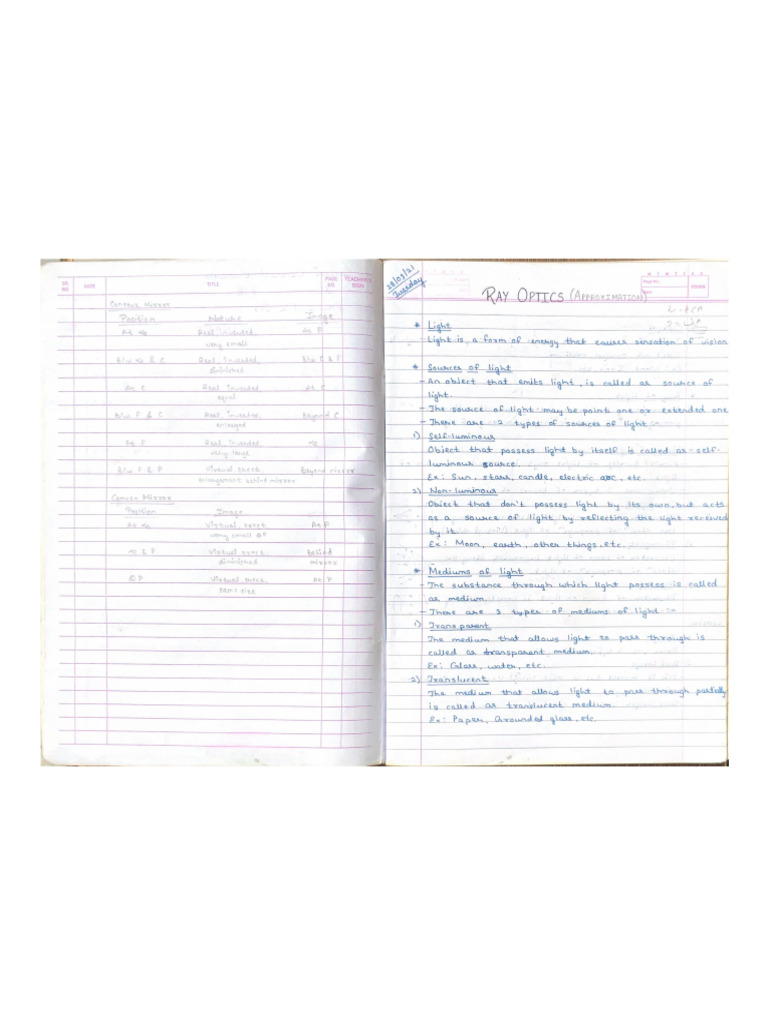 SR. NO.
DATE
TITLE
PAGE NO.
TEACHER'S SIGN
Concave Mirror
Position Nature Image
At ∞ Real, inverted, At F
very small
B/w ∞ & C Real, Inverted, B/w C & F
diminished
At C Real, inverted, At C
equal
B/w F & C Real, Inverted, Beyond C
enlarged
At F Real, Inverted, ∞
very large
B/w F & P Virtual, erect Beyond mirror
behind mirror
Convex Mirror
Position Image
At ∞ Virtual, erect At F
very small
∞ & P Virtual, erect Behind
diminished mirror
Virtual, erect, At P
same size
Tuesday
RAY OPTICS (APPROXIMATION)
* Light
- Light is a form of energy that causes sensation of vision
* Sources of light
- An object that emits light, is called as source of
light.
- The source of light may be point one or extended one
- There are 2 types of sources of light -
1) Self-luminous
Object that possess light by itself is called as self-
luminous source.
Ex: Sun, stars, candle, electric arc, etc.
2) Non-luminous
Object that don't possess light by its own, but acts
as a source of light by reflecting the light received
by it.
Ex: Moon, earth, other things, etc.
* Mediums of light
- The substance through which light possess is called
as medium.
- There are 3 types of mediums of light -
1) Transparent
The medium that allows light to pass through is
called as transparent medium.
Ex: Glass, water, etc.
2) Translucent
The medium that allows light to pass through partially
is called as translucent medium.
Ex: Paper, Grounded glass, etc.